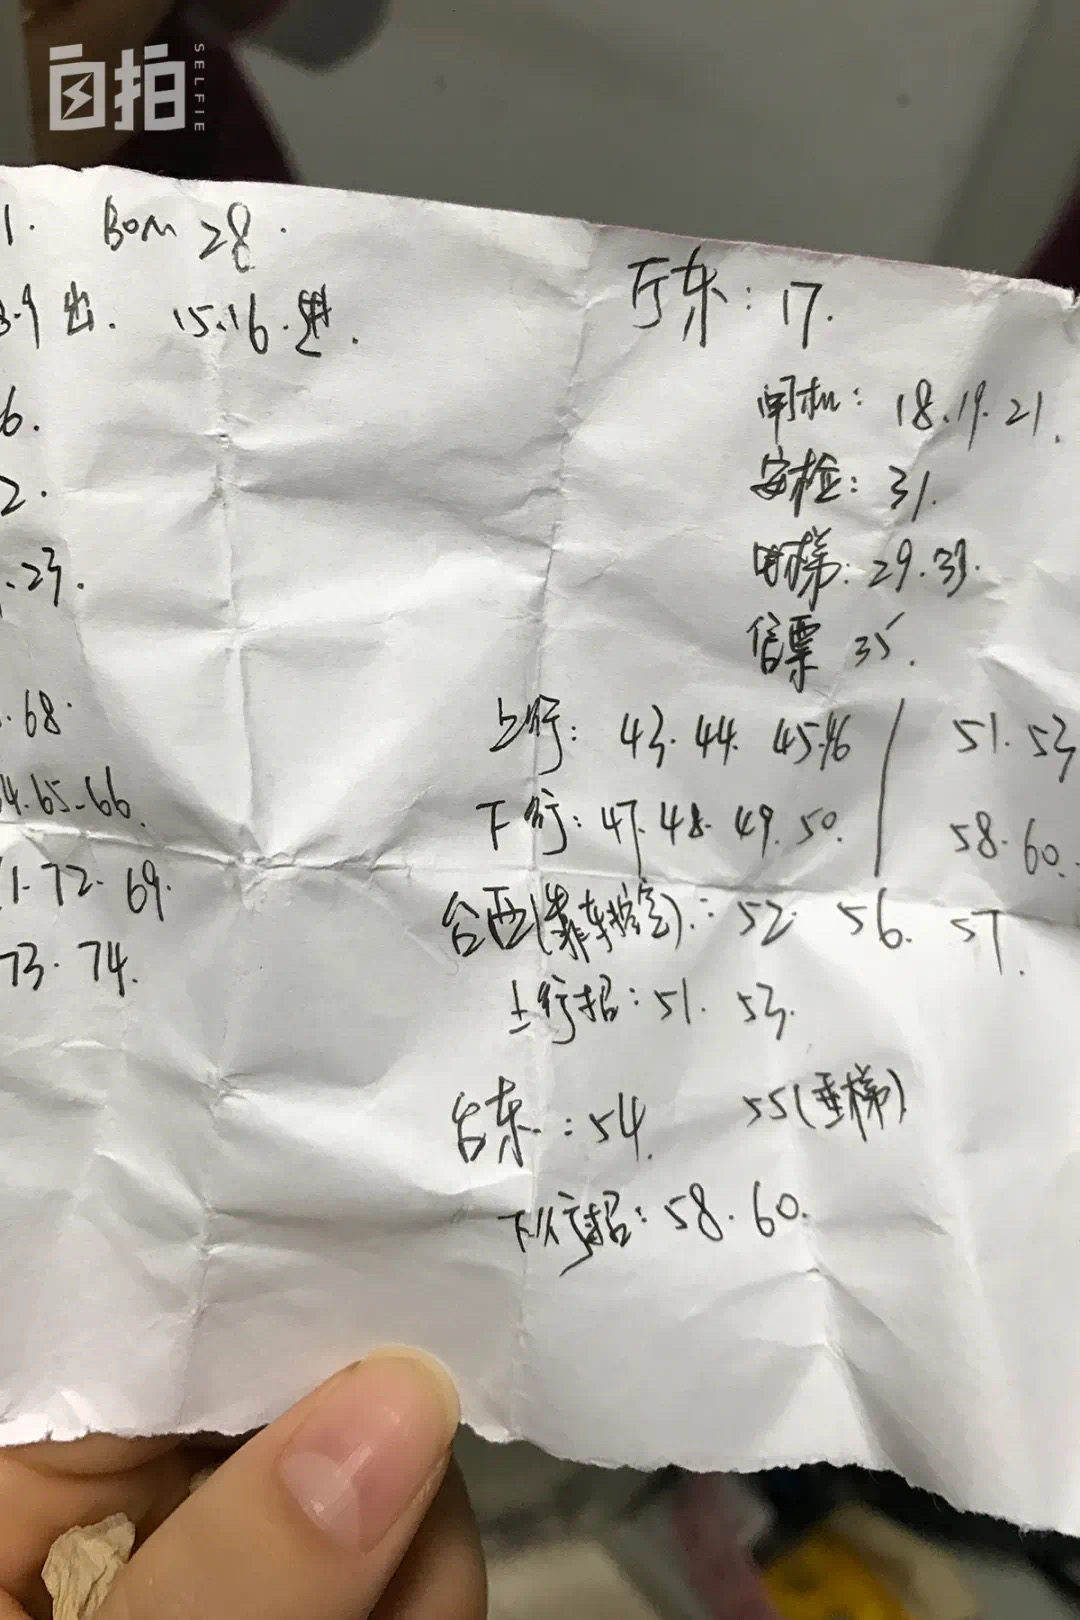 自拍
SELFIE
1. BOM 28.
9出. 15.16.进.
6.
2.
.23.
.68.
4.65.66.
1.72.69.
73.74.
厅东: 17.
闸机: 18.19.21.
安检: 31.
电梯: 29.39.
客票 35.
上行: 43.44.45.46 / 51.53
下行: 47.48.49.50. / 58.60.
台西(靠车控室): 52 56. 57.
上行招: 51. 53.
台东: 54. 55(垂梯)
下行招: 58.60.